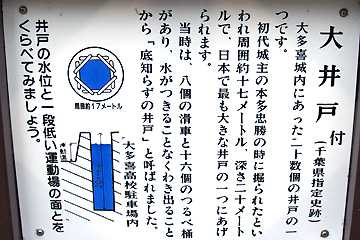 大井戸 付(千葉県指定史跡)
大多喜城内にあった二十数個の井戸の一
つです。
初代城主の本多忠勝の時に掘られたとい
われ周囲約十七メートル、深さ二十メート
ルで、日本で最も大きな井戸の一つにあげ
られます。
当時は、八個の滑車と十六個のつるべ桶
があり、水がつきることなくわき出ること
から、「底知らずの井戸」と呼ばれました。
周囲約17メートル
大多喜高校駐車場内
運動場
井戸の水位と一段低い運動場の面とを
くらべてみましょう。